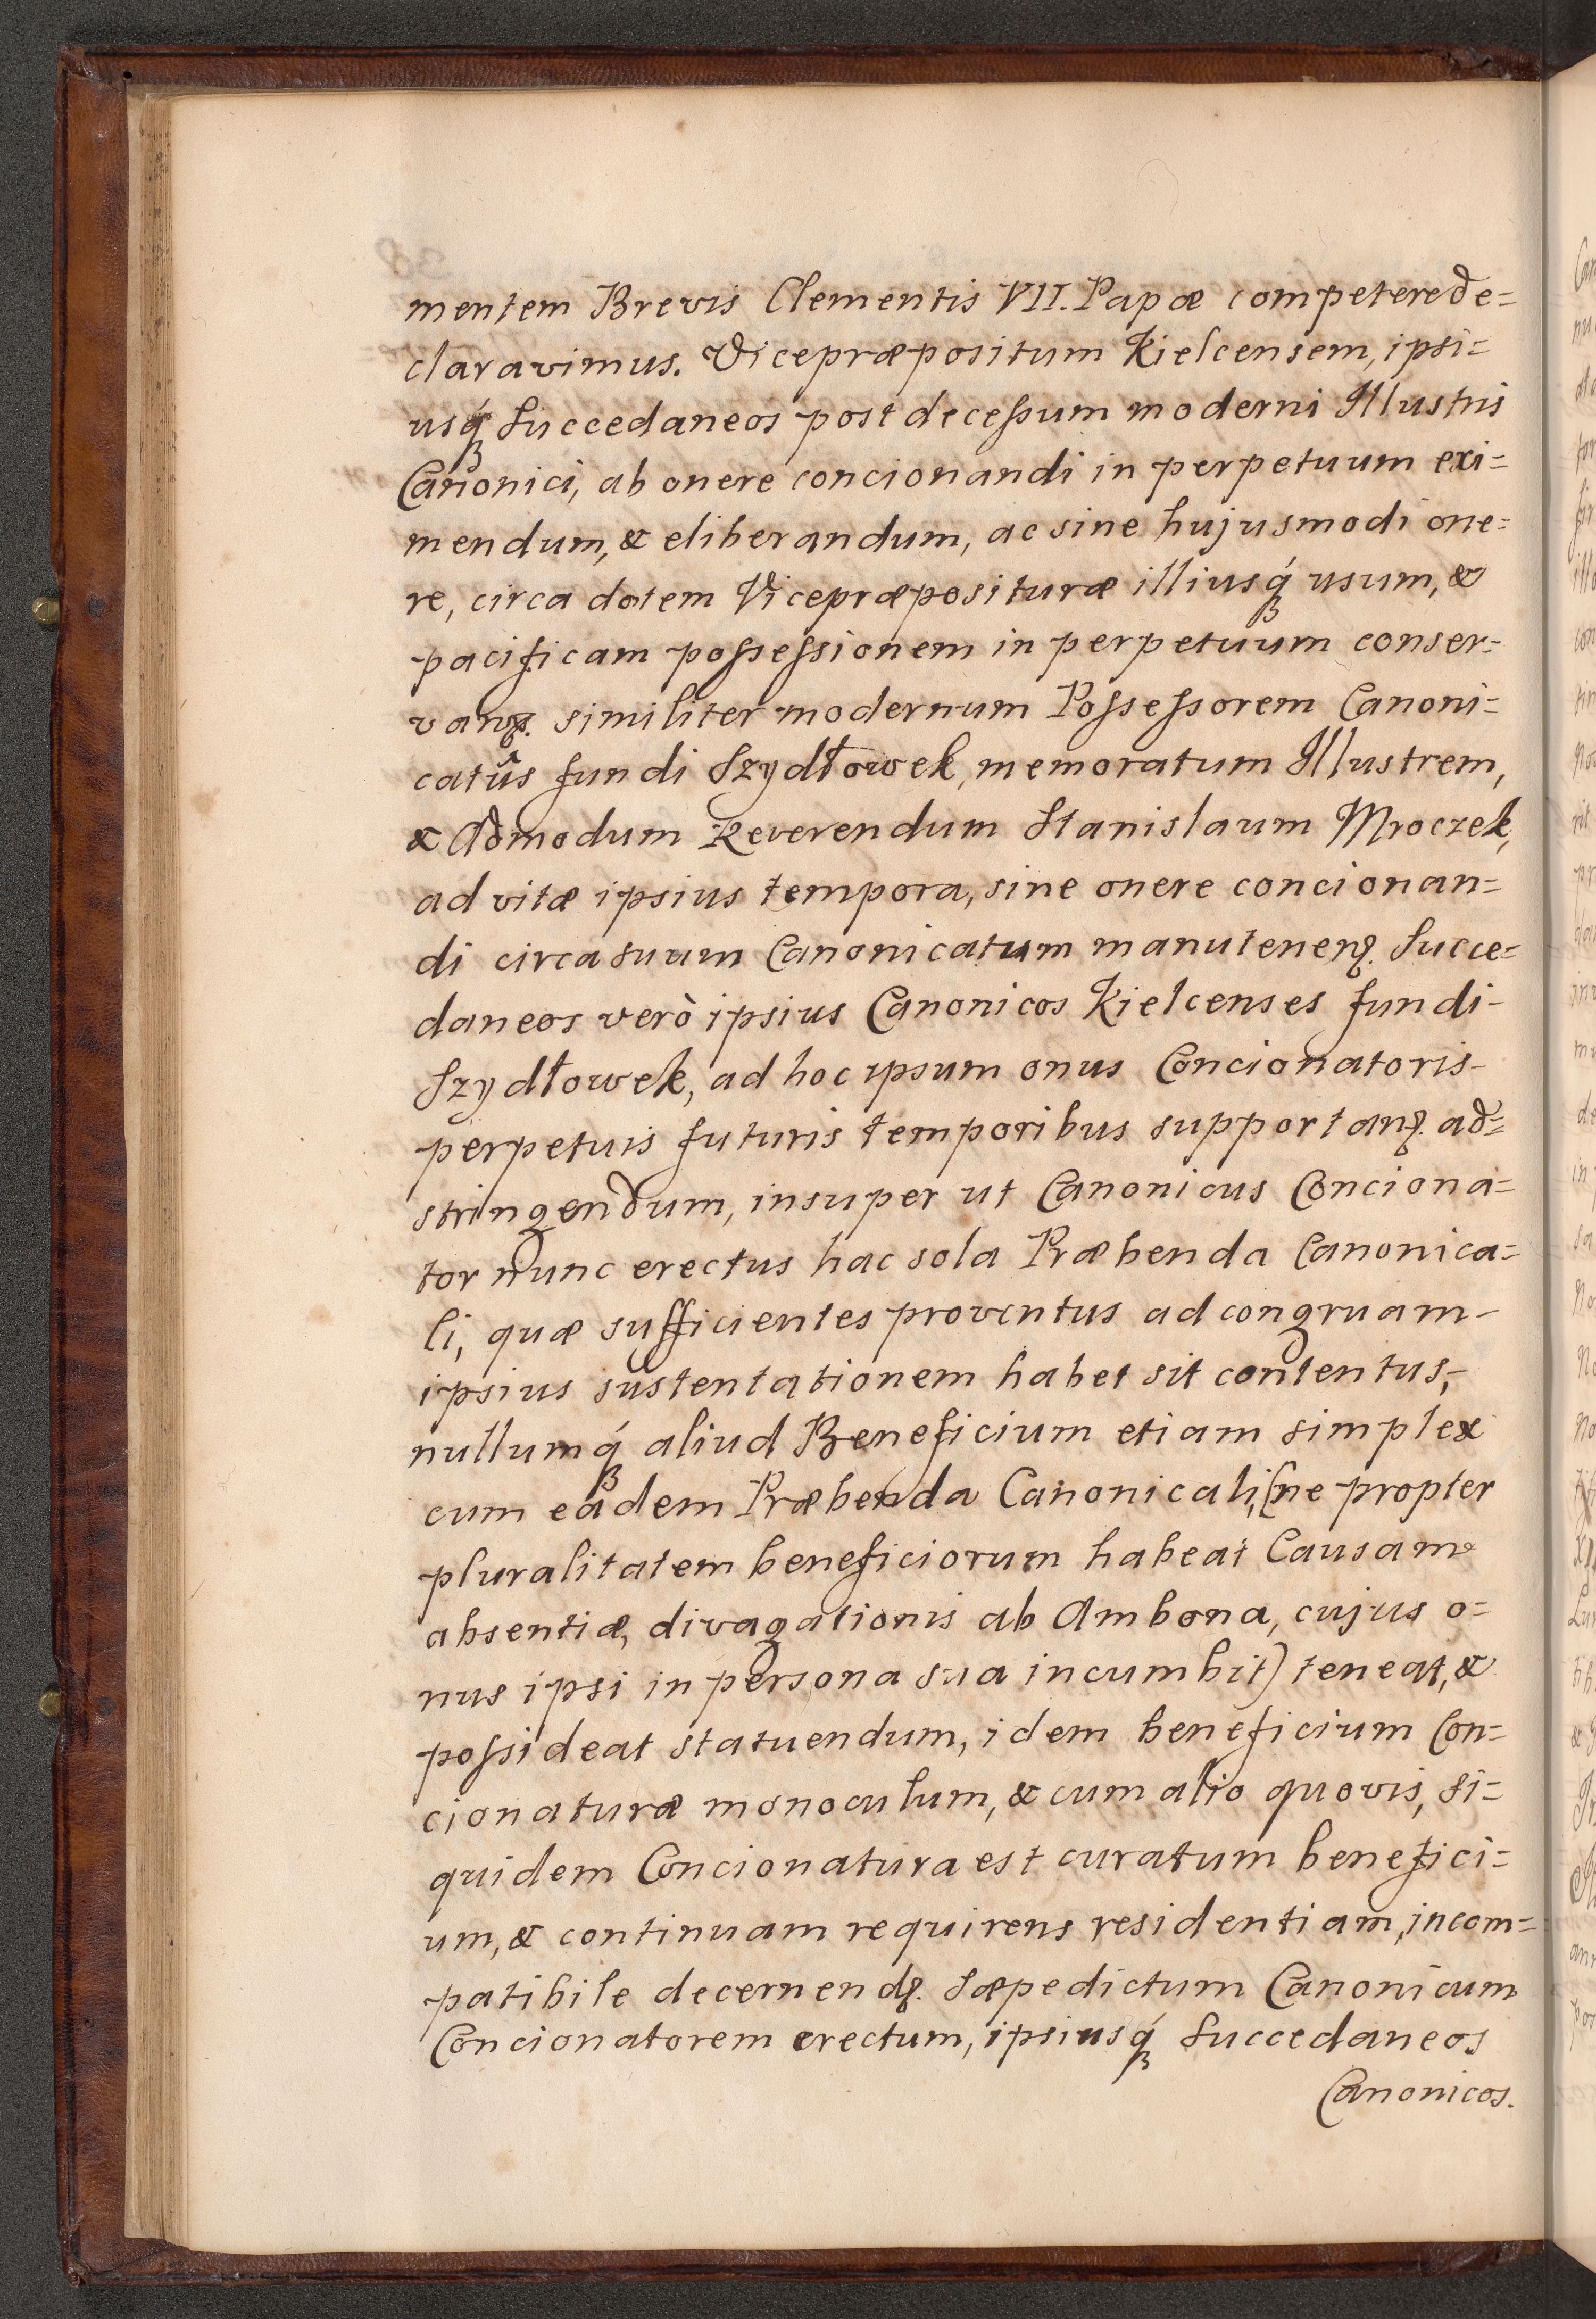 mentem Brevis Clementis VII. Papæ competere de=
claravimus. Vicepræpositum Kielcensem, ipsi=
usq́ꝫ Succedaneos post decessum moderni Illustris
Canonici, ab onere concionandi in perpetuum exi=
mendum, & eliberandum, ac sine hujusmodi one=
re, circa dotem Vicepræposituræ illiusq́ꝫ usum, &
pacificam possessionem in perpetuum conser=
vanꝫ. similiter modernum Possessorem Canoni=
catûs fundi Szydłowek, memoratum Illustrem,
& Admodum Reverendum Stanislaum Mroczek,
ad vitæ ipsius tempora, sine onere concionan=
di circa suum Canonicatum manutenenꝫ. Succe=
daneos verò ipsius Canonicos Kielcenses fundi-
Szydłowek, ad hoc ipsum onus Concionatoris-
perpetuis futuris temporibus supportanꝫ. ad=
stringendum, insuper ut Canonicus Conciona=
tor nunc erectus hac sola Præbenda Canonica=
li, quæ sufficientes proventus ad congruam-
ipsius sustentationem habet sit contentus,-
nullumq́ꝫ aliud Beneficium etiam simplex
cum eâdem Præbenda Canonicali, (ne propter
pluralitatem beneficiorum habeat Causam
absentiæ, divagationis ab Ambona, cujus o=
nus ipsi in persona sua incumbit) teneat, &
possideat statuendum, idem beneficium Con=
cionaturæ monoculum, & cum alio quovis, si=
quidem Concionatura est curatum benefici=
um, & continuam requirens residentiam, incom=
patibile decernendꝫ. Sæpedictum Canonicum
Concionatorem erectum, ipsiusq́ꝫ Succedaneos
Canonicos.